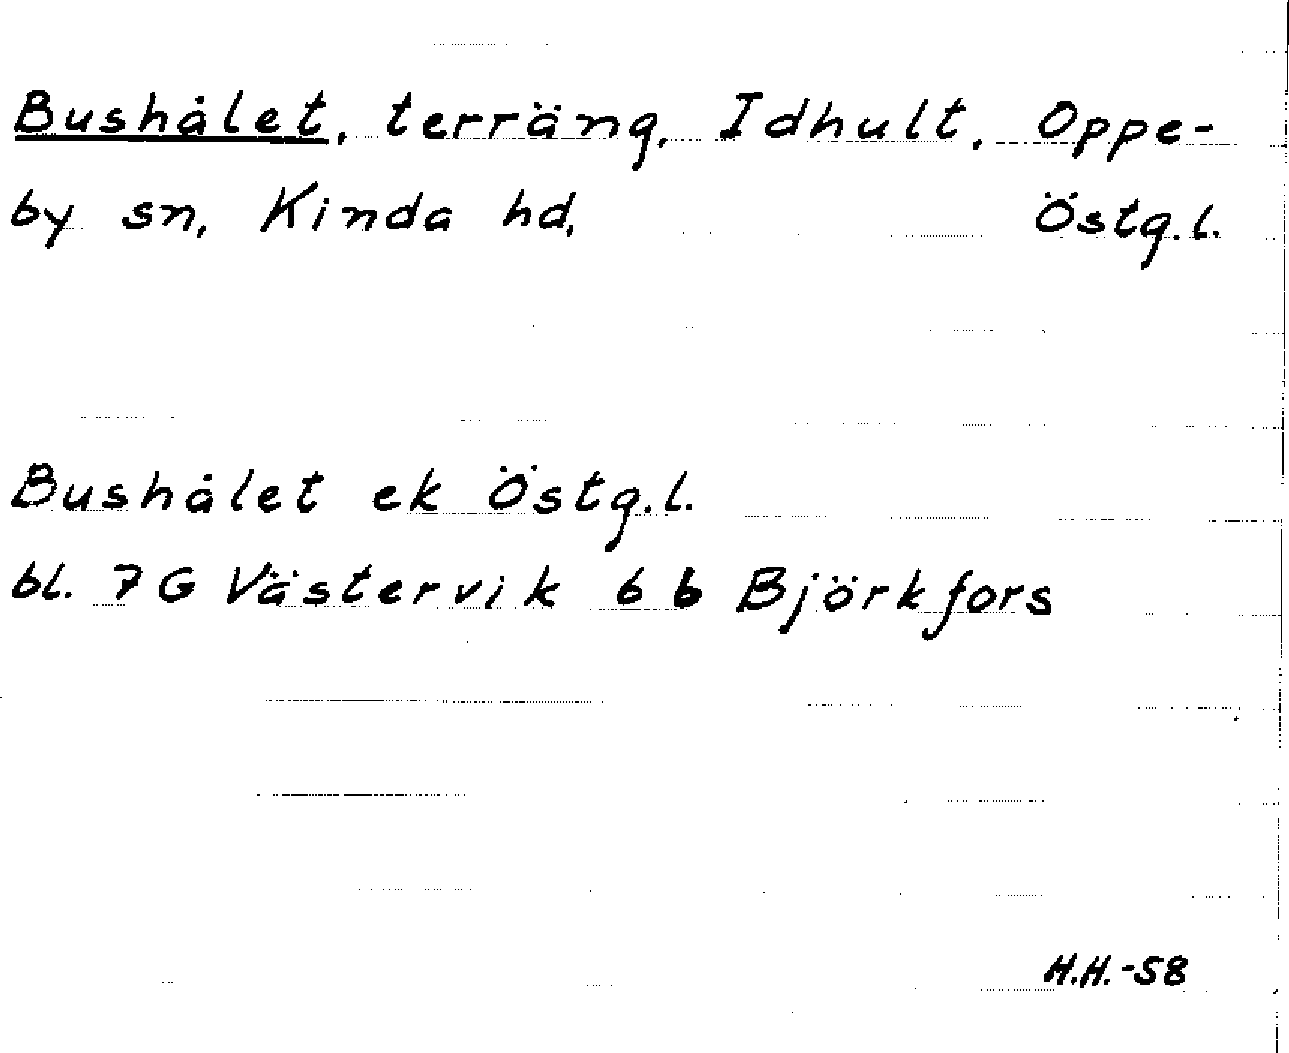 Bushålet, terräng, Idhult, Oppe-
by sn, Kinda hd, Östg.l.
Bushålet ek Östg.l.
bl. 7G Västervik 6b Björkfors
H.H.-58